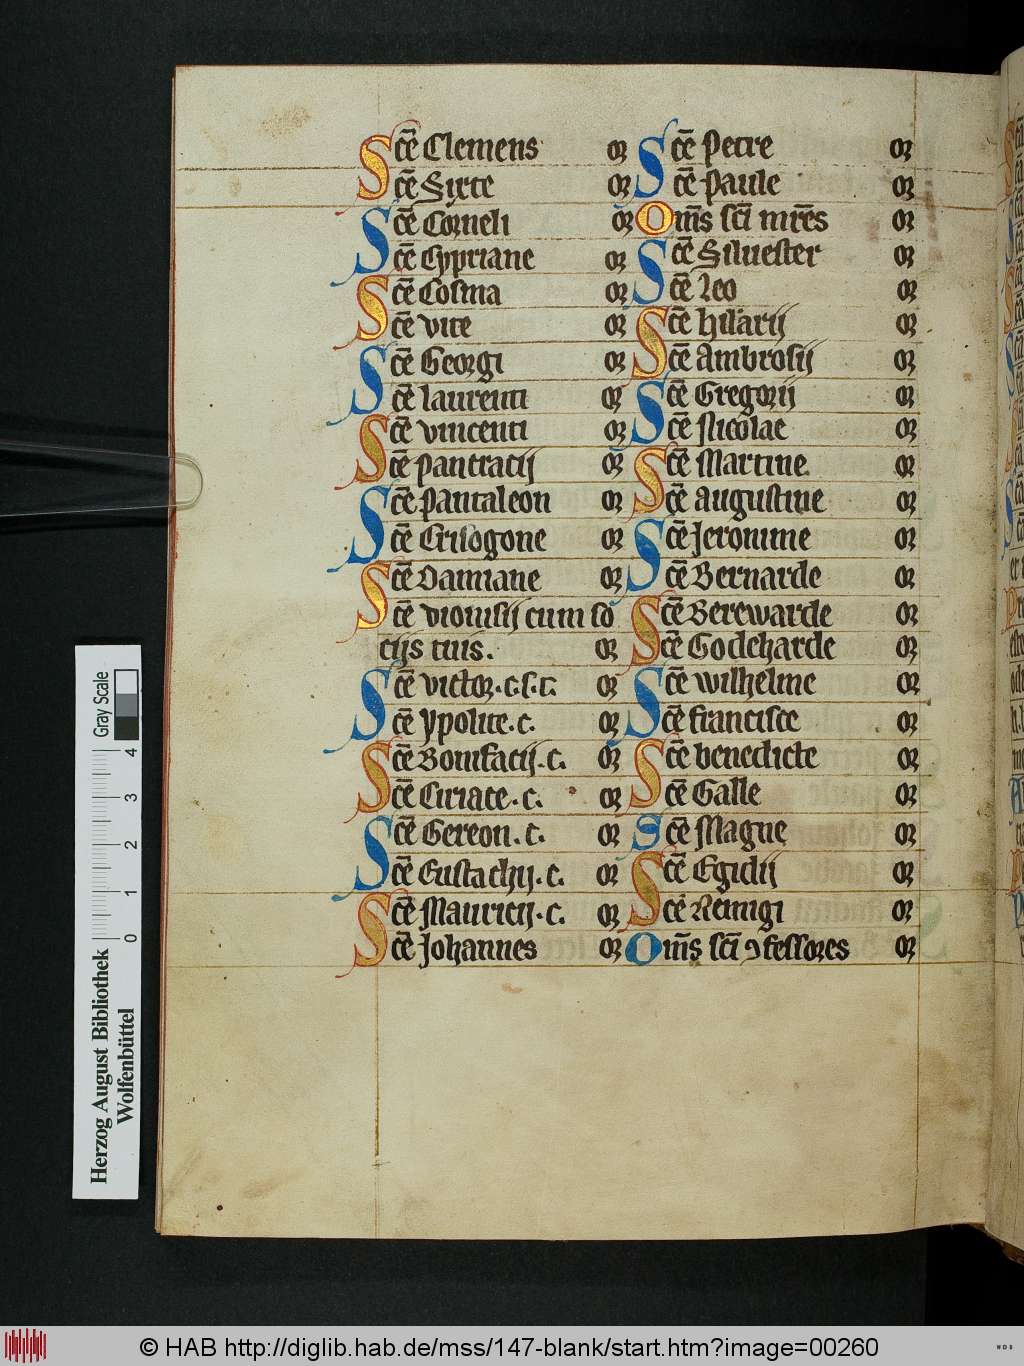 Sce̅ Clemens or
Sce̅ Sixte or
Sce̅ Corneli or
Sce̅ Cypriane or
Sce̅ Cosma or
Sce̅ vite or
Sce̅ Georgi or
Sce̅ laurenti or
Sce̅ vincenti or
Sce̅ pancracij or
Sce̅ pantaleon or
Sce̅ Crisogone or
Sce̅ Damiane or
Sce̅ dionisij cum so
cijs tuis. or
Sce̅ victor.c.s.c. or
Sce̅ ypolite.c. or
Sce̅ Bonifacij.c. or
Sce̅ Ciriace.c. or
Sce̅ Gereon.c. or
Sce̅ Eustachij.c. or
Sce̅ Mauricij.c. or
Sce̅ Johannes or
Sce̅ Petre or
Sce̅ paule or
Om̅s sc̅i mr̅es or
Sce̅ Siluester or
Sce̅ Leo or
Sce̅ hilarij or
Sce̅ Ambrosij or
Sce̅ Gregorij or
Sce̅ Nicolae or
Sce̅ Martine or
Sce̅ augustine or
Sce̅ Jeronime or
Sce̅ Bernarde or
Sce̅ Berewarde or
Sce̅ Godeharde or
Sce̅ wilhelme or
Sce̅ francisce or
Sce̅ benedicte or
Sce̅ Galle or
Sce̅ Magne or
Sce̅ Egidij or
Sce̅ Remigi or
Om̅s sc̅i ꝯfessores or
Gray Scale
4 3 2 1 0
Herzog August Bibliothek
Wolfenbüttel
© HAB http://diglib.hab.de/mss/147-blank/start.htm?image=00260